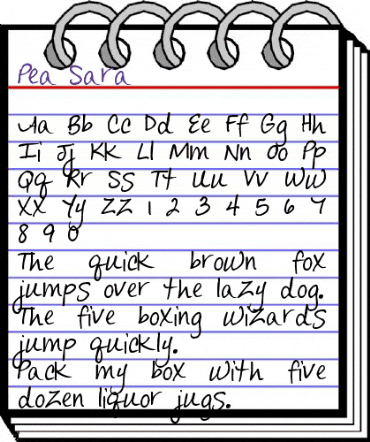 Pea Sara
Aa Bb Cc Dd Ee Ff Gg Hh
Ii Jj KK Ll Mm Nn Oo Pp
Qq Rr SS Tt Uu Vv WW
XX Yy ZZ 1 2 3 4 5 6 7
8 9 0
The quick brown fox
jumps over the lazy dog.
The five boxing wizards
jump quickly.
Pack my box with five
dozen liquor jugs.